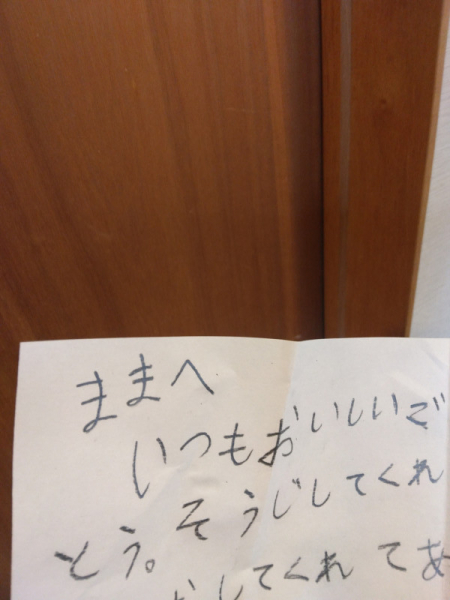 ままへ
いつもおいしいご
そうじしてくれ
とう。
してくれてあ